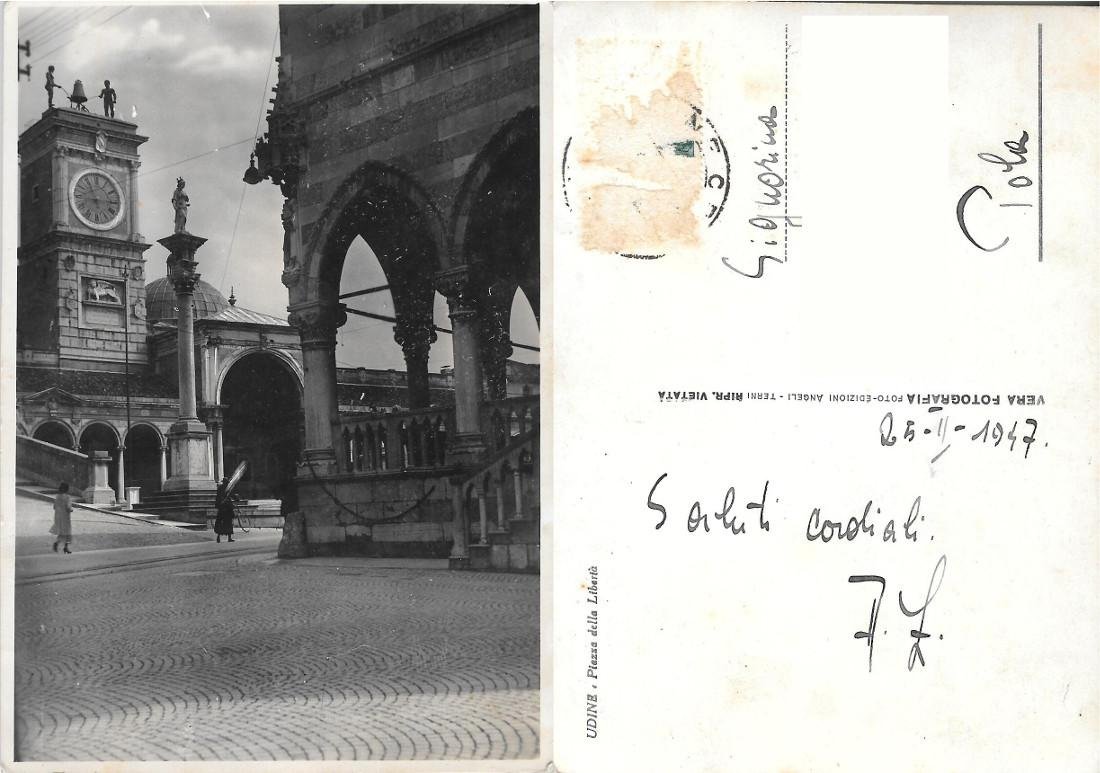 Signorina
Pola
VERA FOTOGRAFIA FOTO-EDIZIONI ANGELI - TERNI RIPR. VIETATA
25-II-1947.
Saluti cordiali.
UDINE - Piazza della Libertà